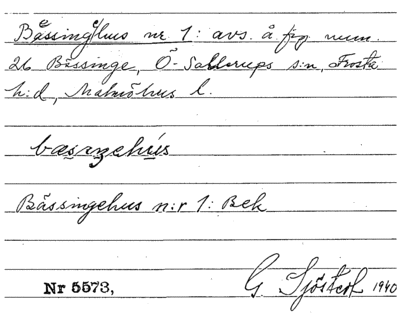 Bässingehus nr 1: avs. å fsg num.
26 Bässinge, Ö. Sallerups s:n, Frosta
h:d, Malmöhus l.
bæsıŋehús
Bässingehus n:r 1: Bek
Nr 5573, G. Sjöstedt 1940